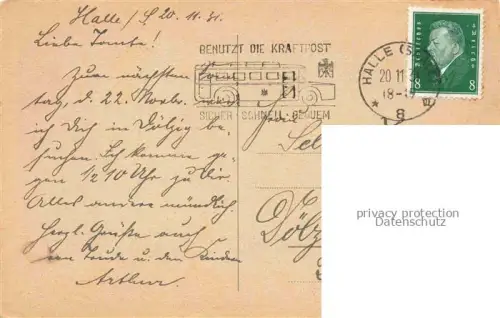 Halle / S 20. 11. 31.
Liebe Tante!
Zum nächsten
tag, d. 22. Novbr.
ich Dich in Dölzig be-
suchen. Ich komme ge-
gen 1/2 10 Uhr zu Dir.
Alles andere mündlich.
Herzl. Grüße auch
von Trude u. den Kindern
Arthur.
BENUTZT DIE KRAFTPOST
SICHER - SCHNELL - BEQUEM
HALLE (S
20 11
18-1
* 8
DEUTSCHES REICH
8 8
Dölz
privacy protection
Datenschutz